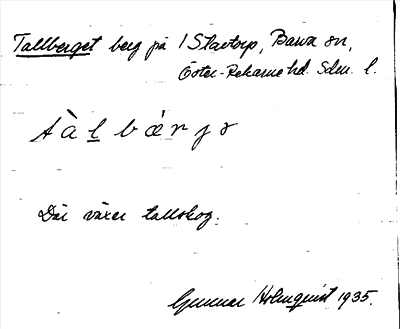 Tallberget berg på 1 Stavtorp, Barva sn,
Öster-Rekarne hd. Sdm. l.
tàlbærjə
Där växer tallskog.
Gunnar Holmquist 1935.